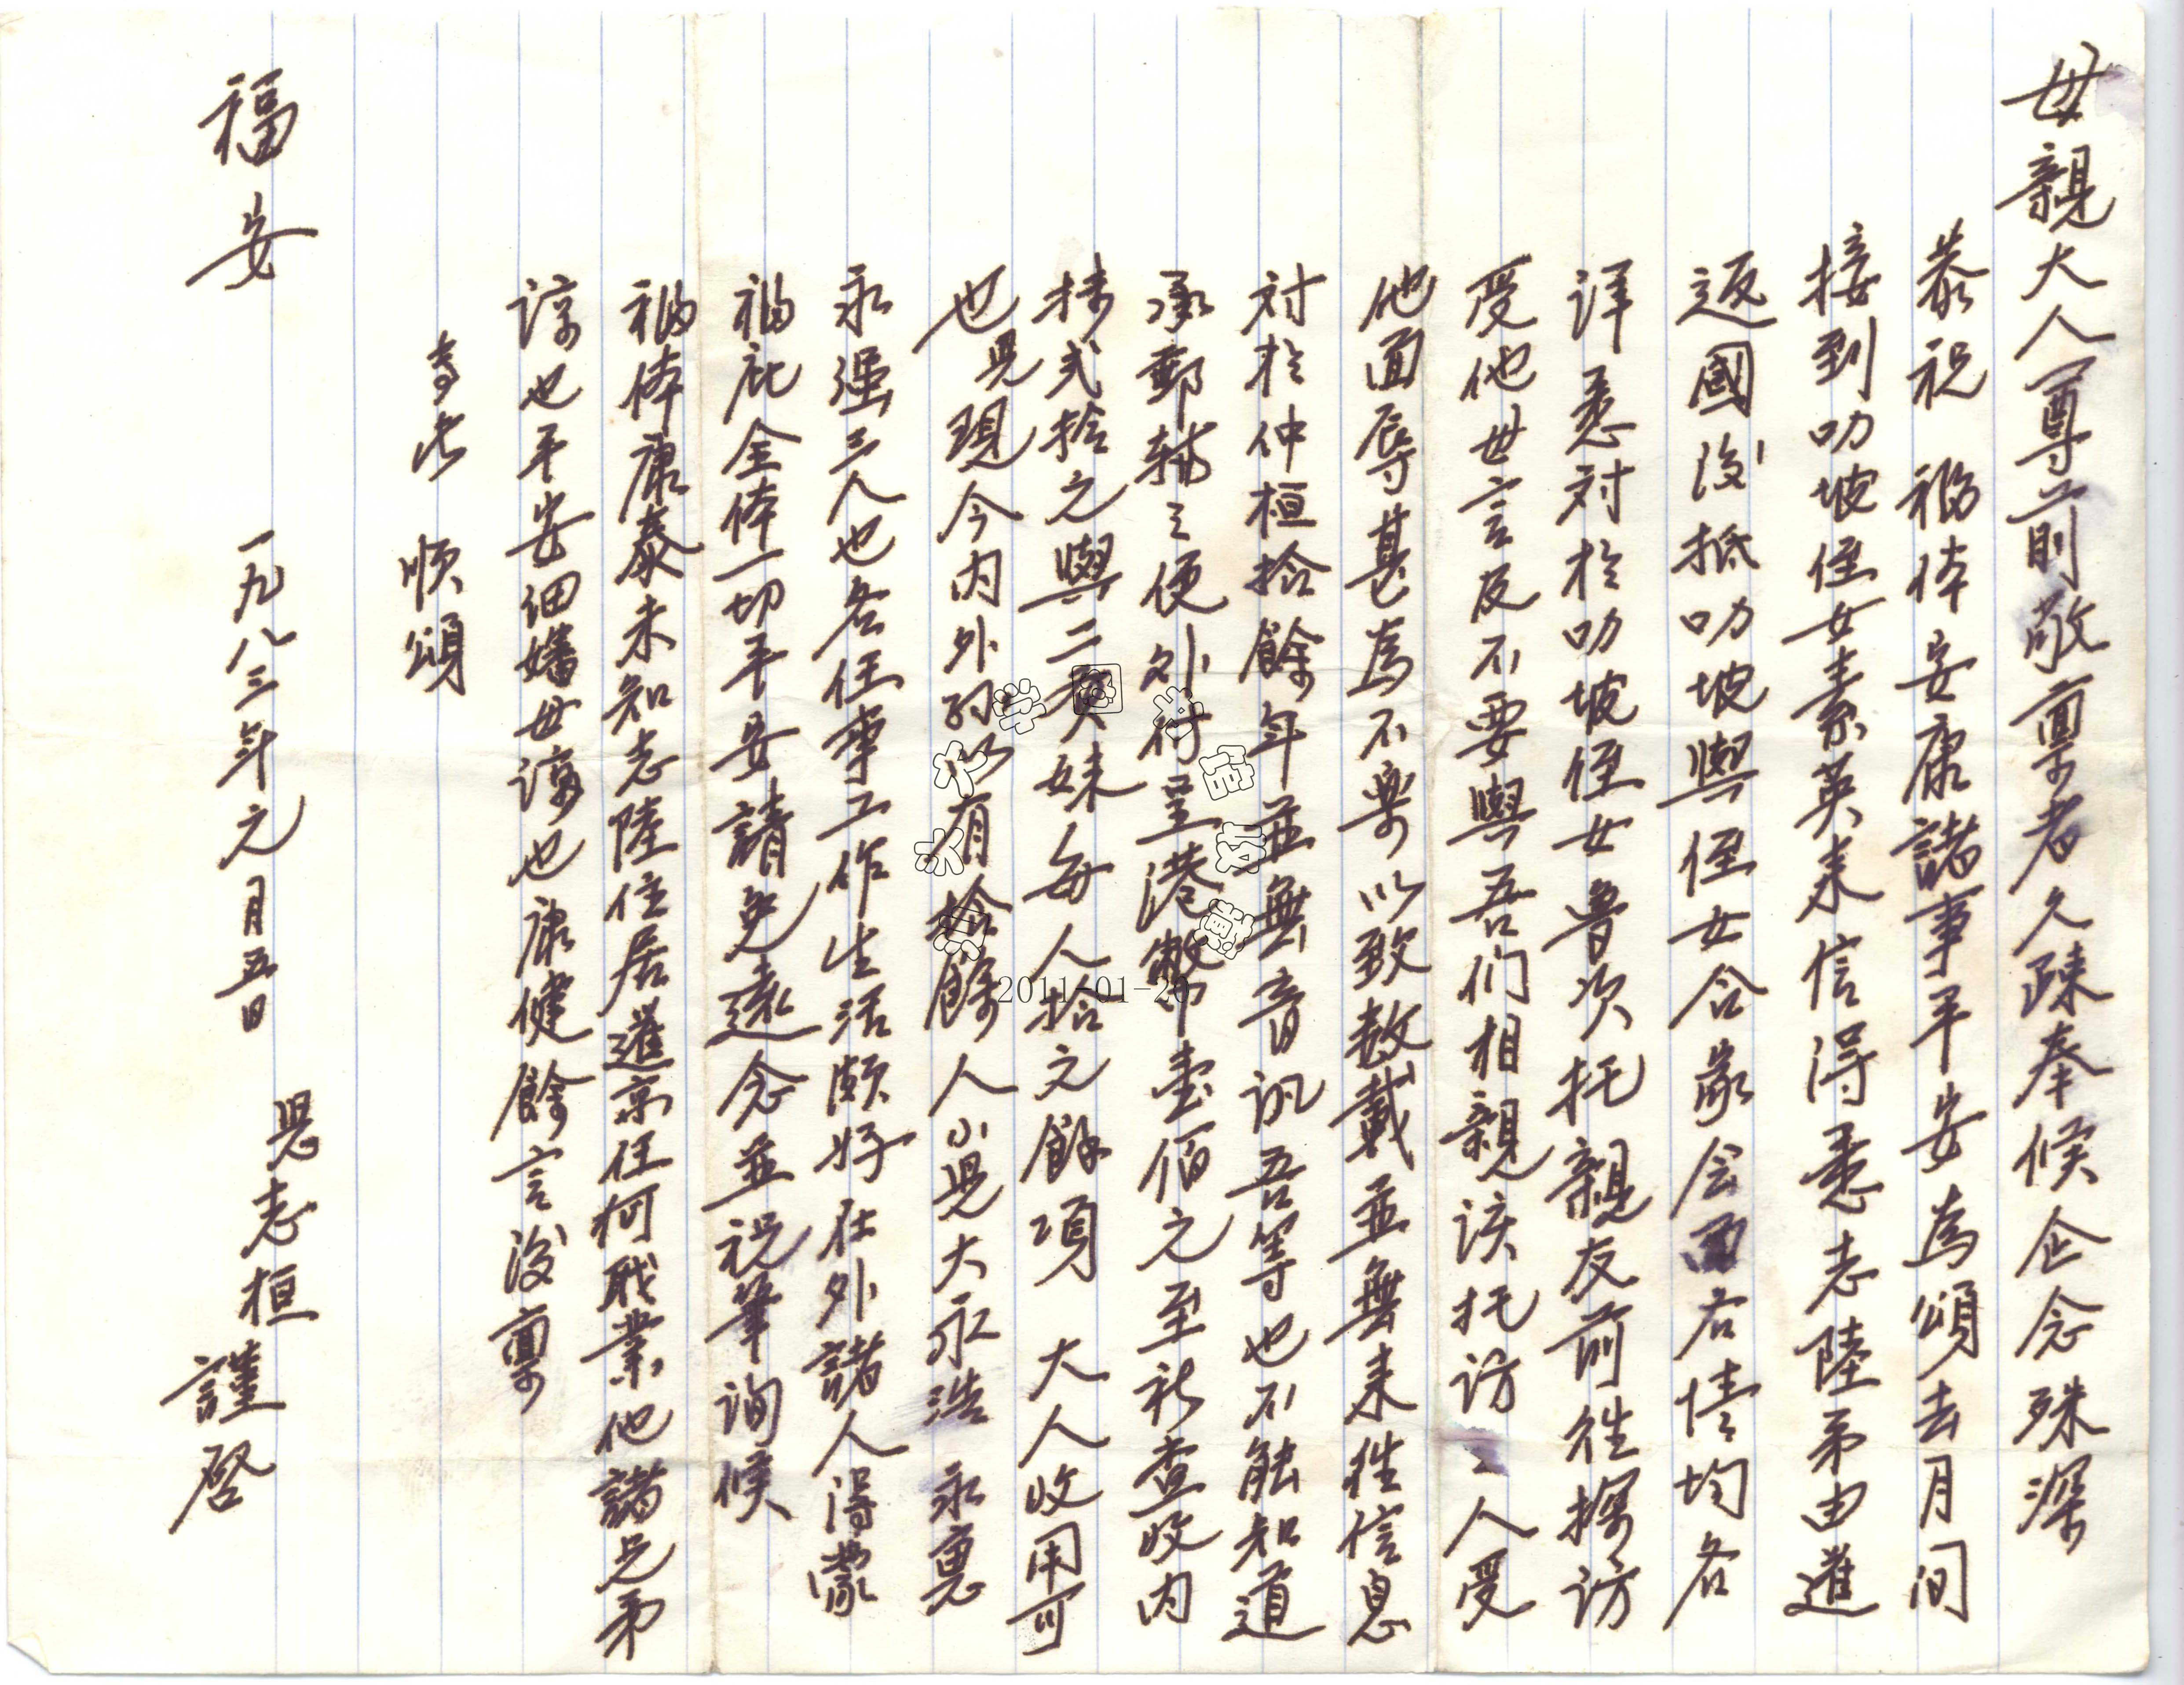 母親大人尊前敬稟者久疎奉候企念殊深
恭祝 福体安康諸事平安為頌去月间
接到叻坡侄女素英来信得悉志陸弟由暹
返國後抵叻坡與侄女合家会面右情均各
详悉对於叻坡侄女魯次托親友前往探访
受他世言反不要與吾们相親该托访之人受
他面辱甚為不樂以致数載並無来往信息
对於仲桓拾餘年並無音讯吾等也不能知道
承郵辅之便外付呈港幣壹佰元至祈查收内
抹式拾元與二賢妹每人拾元餘項 大人收用可
也兒現今内外孙以有拾餘人小兒大永浩 永裏
永强三人也各任事工作生活颇好在外諸人得蒙
福庇全体一切平安請免遠念並祝筆询候
福体康泰未知志陸住居暹京任何职業他諸兄弟
谅也平安细嬸母谅也康健餘言後稟
専此 顺頌
福安
一九八三年元月五日
兒志桓謹啓
2011-01-20